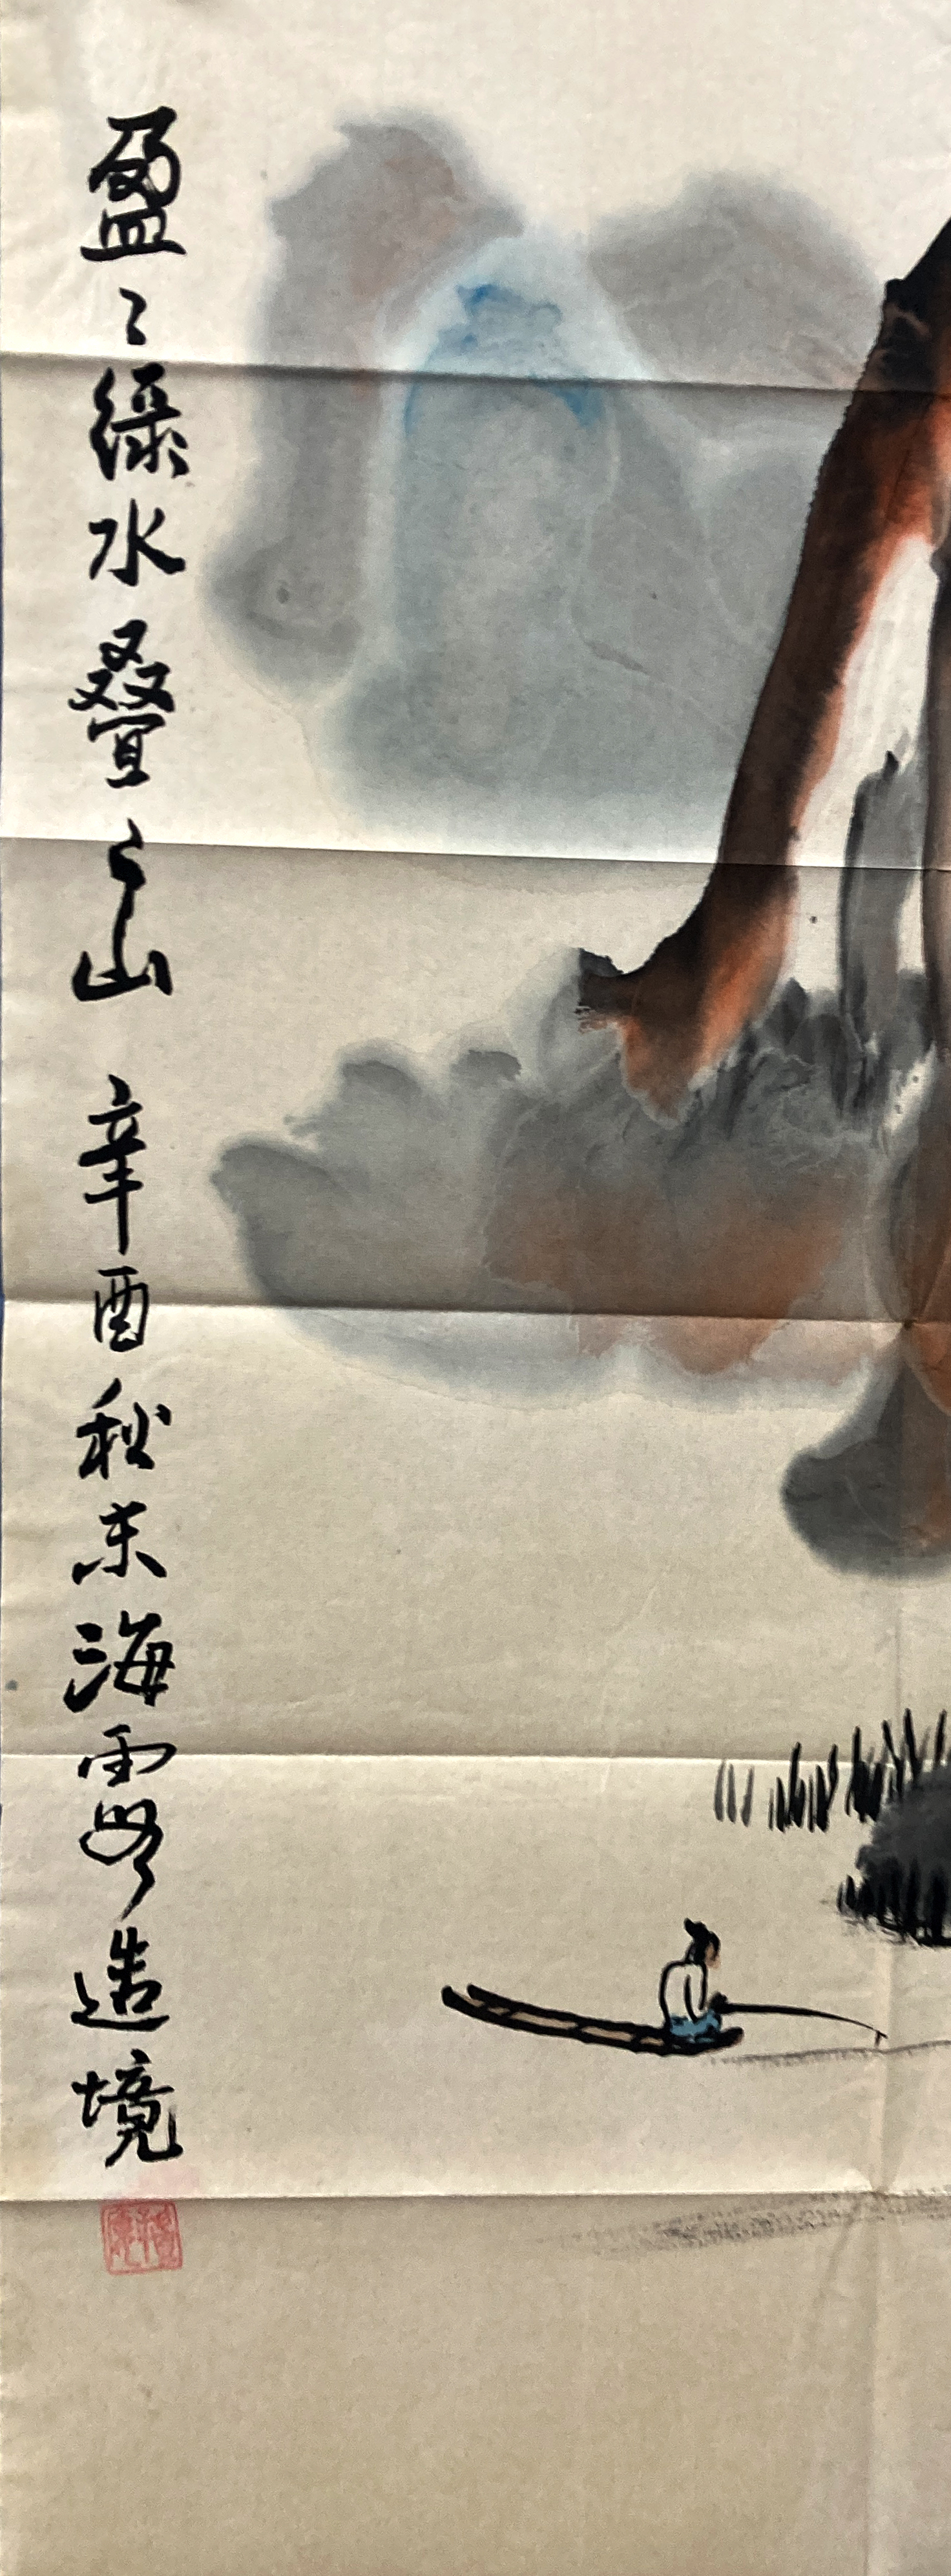 盈〻綠水叠〻山 辛酉秋末海造境